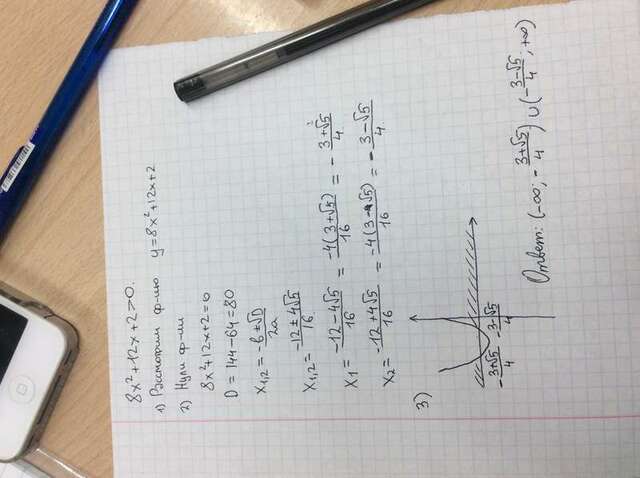 8x²+12x+2>0.
1) Рассмотрим ф-ию y=8x²+12x+2
2) Нули ф-ии
8x²+12x+2=0
D = 144-64=80
x₁,₂ = (-b ± √D)/2a
x₁,₂ = (-12 ± 4√5)/16
x₁ = (-12-4√5)/16 = (-4(3+√5))/16 = - (3+√5)/4
x₂ = (-12+4√5)/16 = (-4(3-√5))/16 = - (3-√5)/4
3)
- (3+√5)/4 - (3-√5)/4
Ответ: (-∞; - (3+√5)/4) ∪ (- (3-√5)/4; +∞)